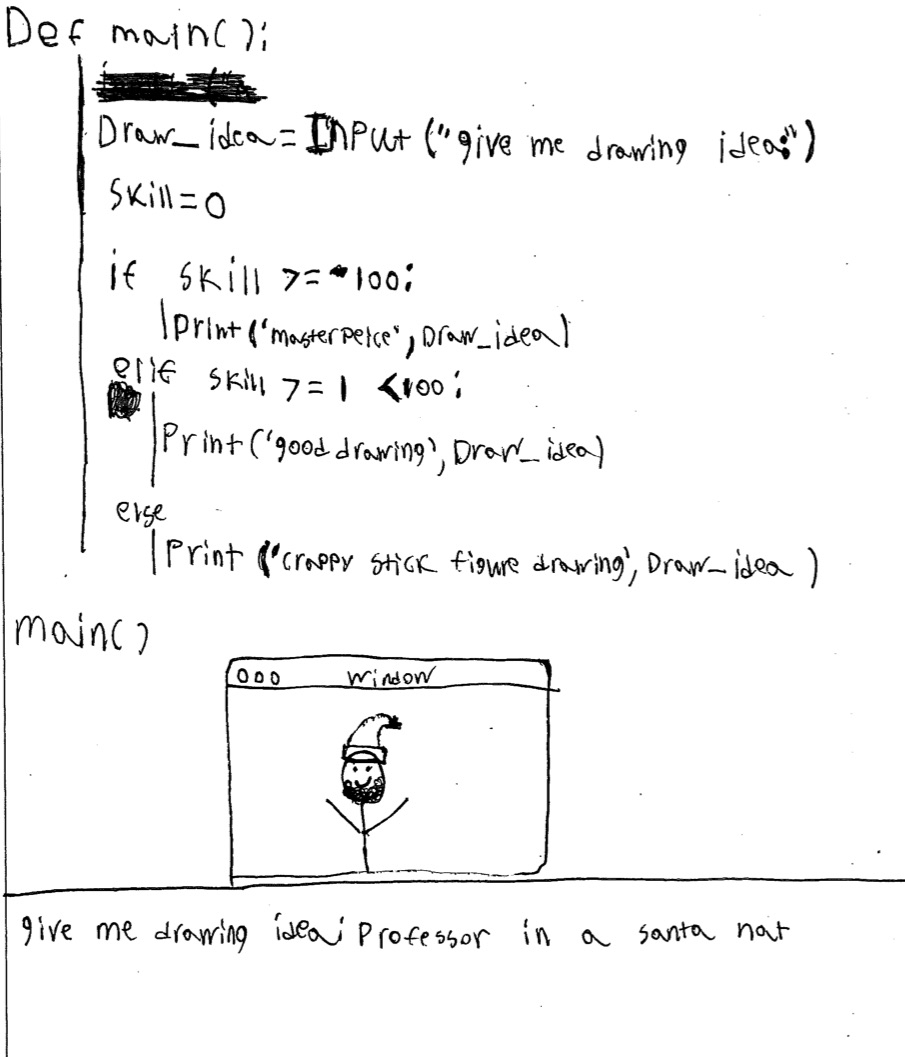 Def main():
Draw_idea = INPut ("give me drawing idea:")
Skill = 0
if skill >= 100:
Print ('masterpeice', Draw_idea)
elif skill >= 1 <100:
Print ('good drawing', Draw_idea)
else
Print ('crappy stick figure drawing', Draw_idea )
main()
window
give me drawing idea: Professor in a santa hat